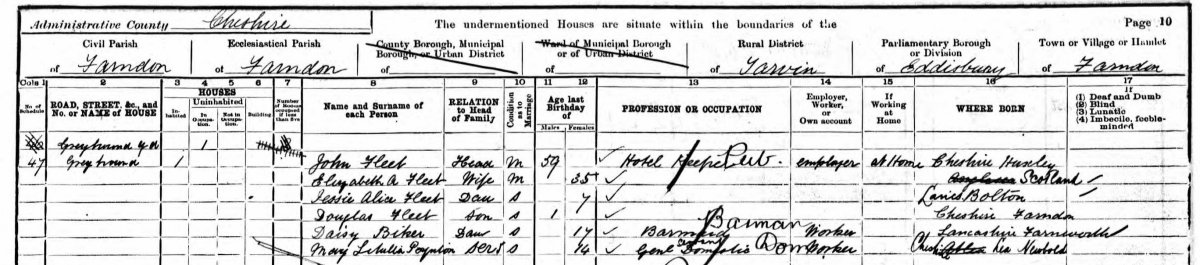 Administrative County Cheshire The undermentioned Houses are situate within the boundaries of the Page 10
Civil Parish Ecclesiastical Parish County Borough, Municipal Borough, or Urban District Ward of Municipal Borough or of Urban District Rural District Parliamentary Borough or Division Town or Village or Hamlet
of Farndon of Farndon of of of Tarvin of Eddisbury of Farndon
Cols 1 2 3 4 5 6 7 8 9 10 11 12 13 14 15 16 17
No. of Schedule ROAD, STREET, &c., and No. or NAME of HOUSE HOUSES Inhabited Uninhabited In Occupation. Not in Occupation. Building Number of Rooms occupied if less than five Name and Surname of each Person RELATION to Head of Family Condition as to Marriage Age last Birthday of Males Females PROFESSION OR OCCUPATION Employer, Worker, or Own account If Working at Home WHERE BORN If (1) Deaf and Dumb (2) Blind (3) Lunatic (4) Imbecile, feeble-minded
Greyhound yd 1
47 Greyhound 1 John Fleet Head M 59 Hotel Keeper Pub. employer at Home Cheshire
Elizabeth A Fleet Wife M 35 Scotland
Jessie Alice Fleet Dau S 7 Lancs Bolton
Douglas Fleet Son S 1 Cheshire Farndon
Daisy Biker Dau S 17 Barmaid Barman Worker Lancashire Farnworth
May Poynton Serv S 14 Genl Domestic Servant Dom Worker Newbold